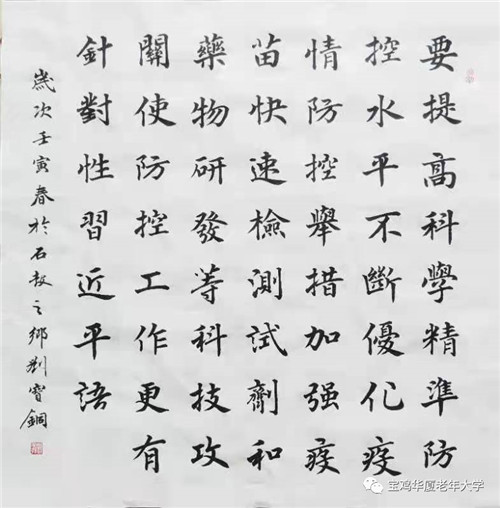 要提高科學精準防
控水平不斷優化疫
情防控舉措加强疫
苗快速檢測試劑和
藥物研發等科技攻
關使防控工作更有
針對性習近平語
歲次壬寅春於石鼓之鄉劉寶銅
宝鸡华厦老年大学